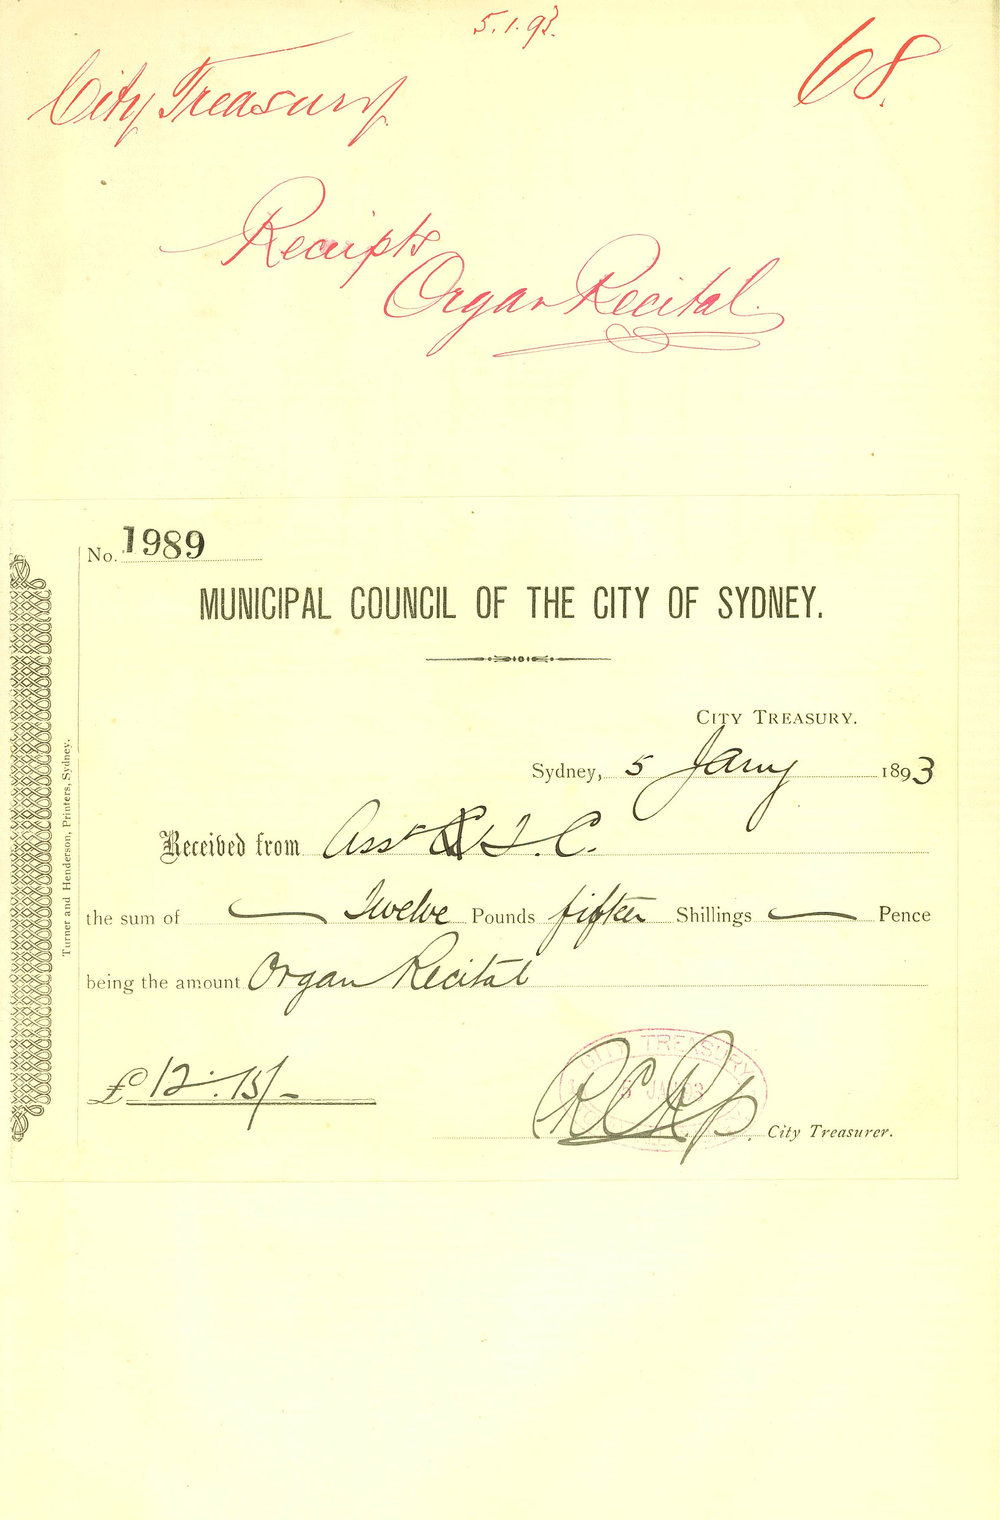 5.1.93.
City Treasury
68.
Receipts
Organ Recital.
No. 1989
MUNICIPAL COUNCIL OF THE CITY OF SYDNEY.
CITY TREASURY.
Sydney, 5 Jany 1893
Received from Asst T. C.
the sum of Twelve Pounds fifteen Shillings Pence
being the amount Organ Recital
£12.15/-
CITY TREASURY
5 JA 93
City Treasurer.
Turner and Henderson, Printers, Sydney.